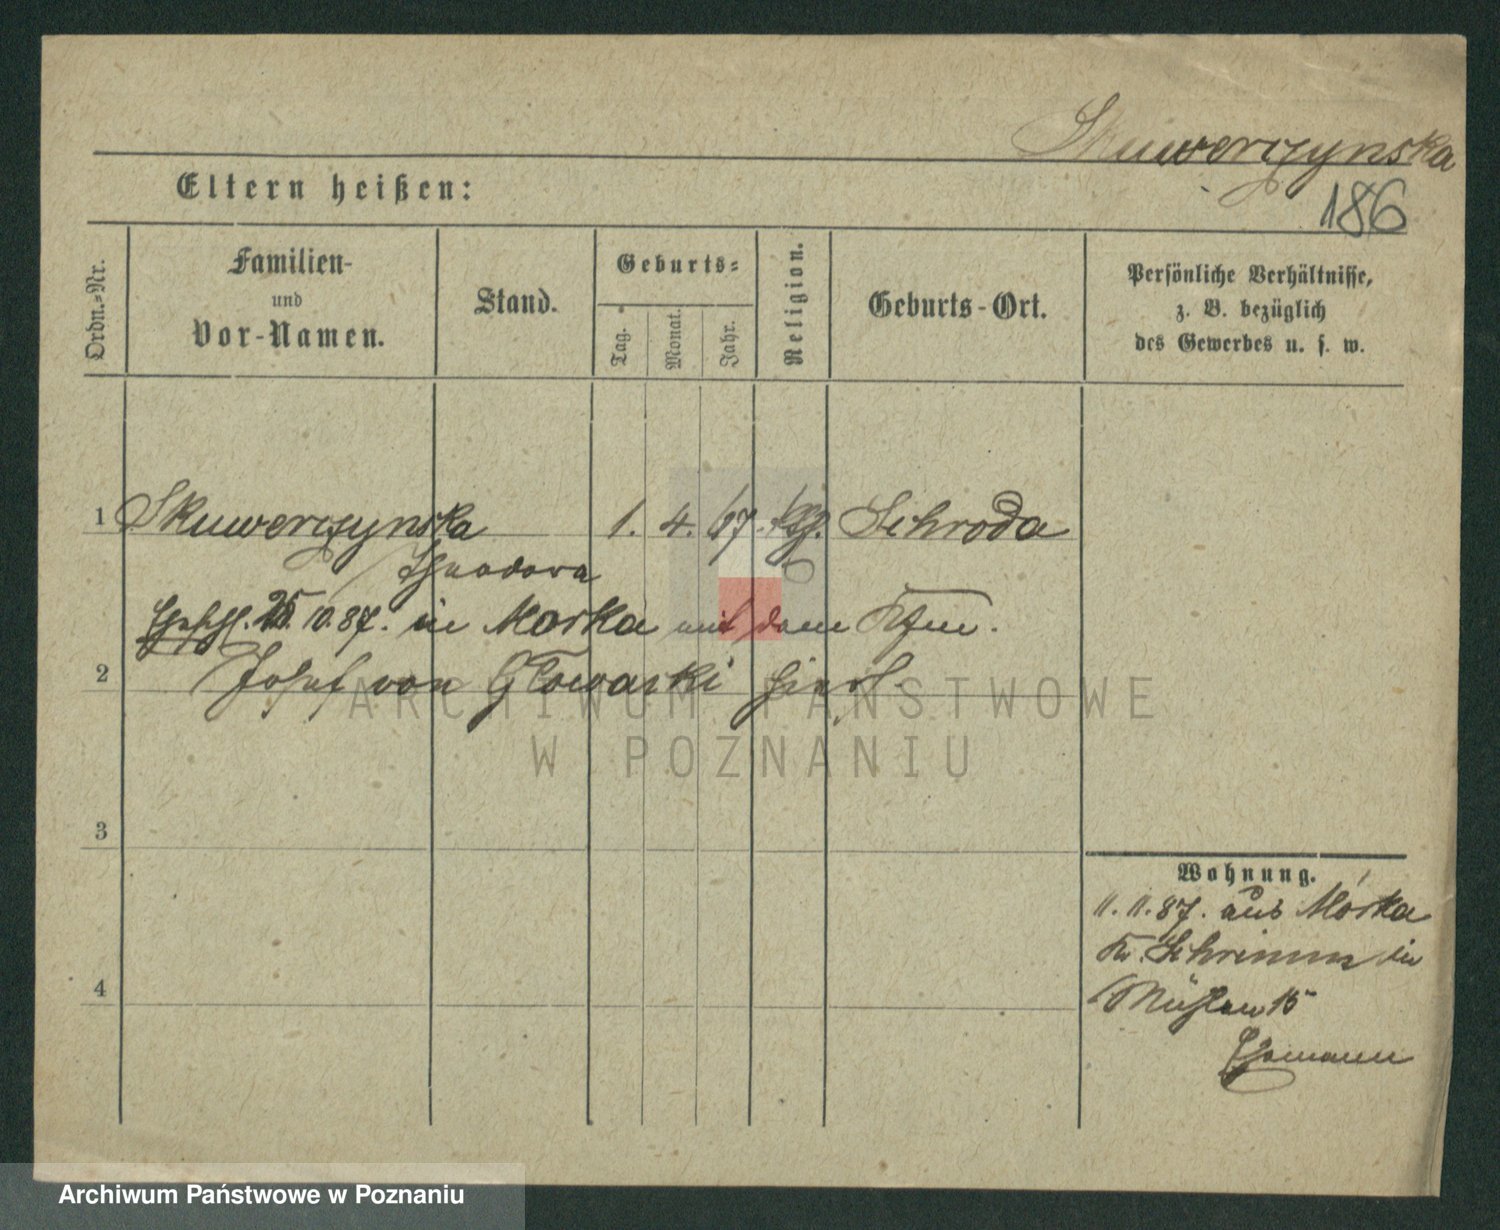 Skuwerczynska
186
Eltern heißen:
Ordn.-Nr.
Familien-
und
Vor-Namen.
Stand.
Geburts-
Tag.
Monat.
Jahr.
Religion.
Geburts-Ort.
Persönliche Verhältnisse,
z. B. bezüglich
des Gewerbes u. s. w.
1 Skuwerczynska 1. 4. 67. ktl. Schroda
Theodora
25. 10. 87. in Morka mit dem Kfm.
2 Josef von Głowacki hiers.
ARCHIWUM PAŃSTWOWE
W POZNANIU
3
Wohnung.
11. 11. 87. aus Morka
Kr. Schrimm in
4 Mühlen 15
Archiwum Państwowe w Poznaniu